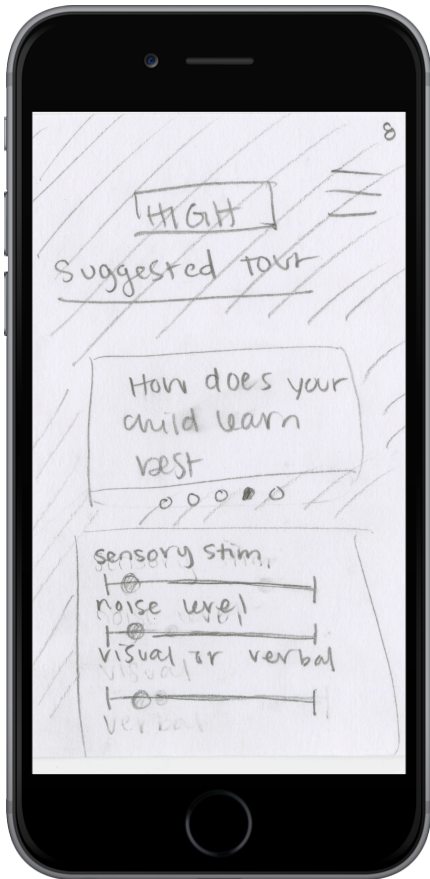 8
HIGH
Suggested tour
How does your
child learn
best
sensory stim.
noise level
visual or verbal
visual
verbal